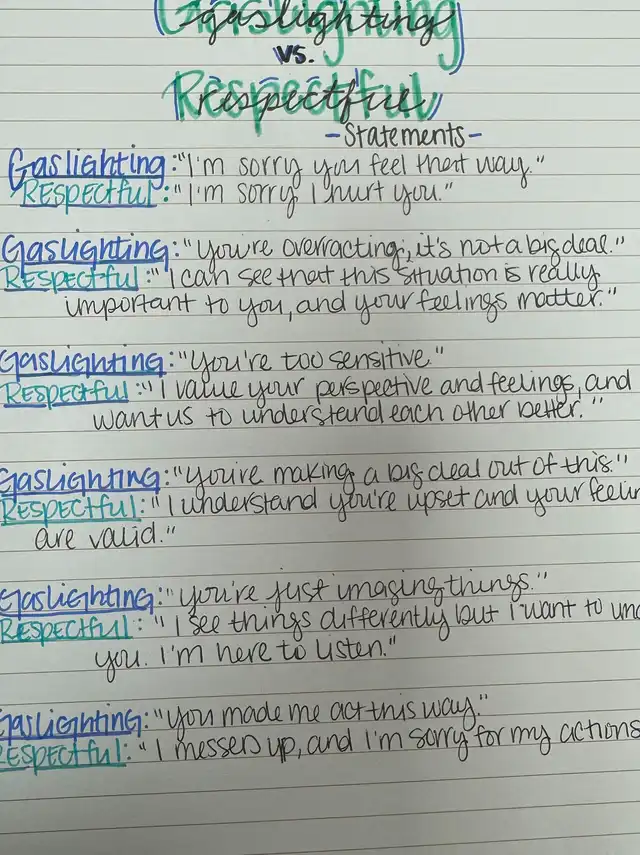 Gaslighting
vs.
Respectful
-Statements-
Gaslighting: "I'm sorry you feel that way."
RESPECTful: "I'm sorry I hurt you."
Gaslighting: "You're overracting, it's not a big deal."
RESPECTful: "I can see that this situation is really
important to you, and your feelings matter."
Gaslighting: "You're too sensitive."
RESPECTful: "I value your perspective and feelings, and
want us to understand each other better."
Gaslighting: "you're making a big deal out of this."
RESPECTful: "I understand you're upset and your feelin
are valid."
Gaslighting: "you're just imaging things."
RESPECTful: "I see things differently but I want to und
you. I'm here to listen."
Gaslighting: "you made me act this way."
RESPECTful: "I messed up, and I'm sorry for my actions